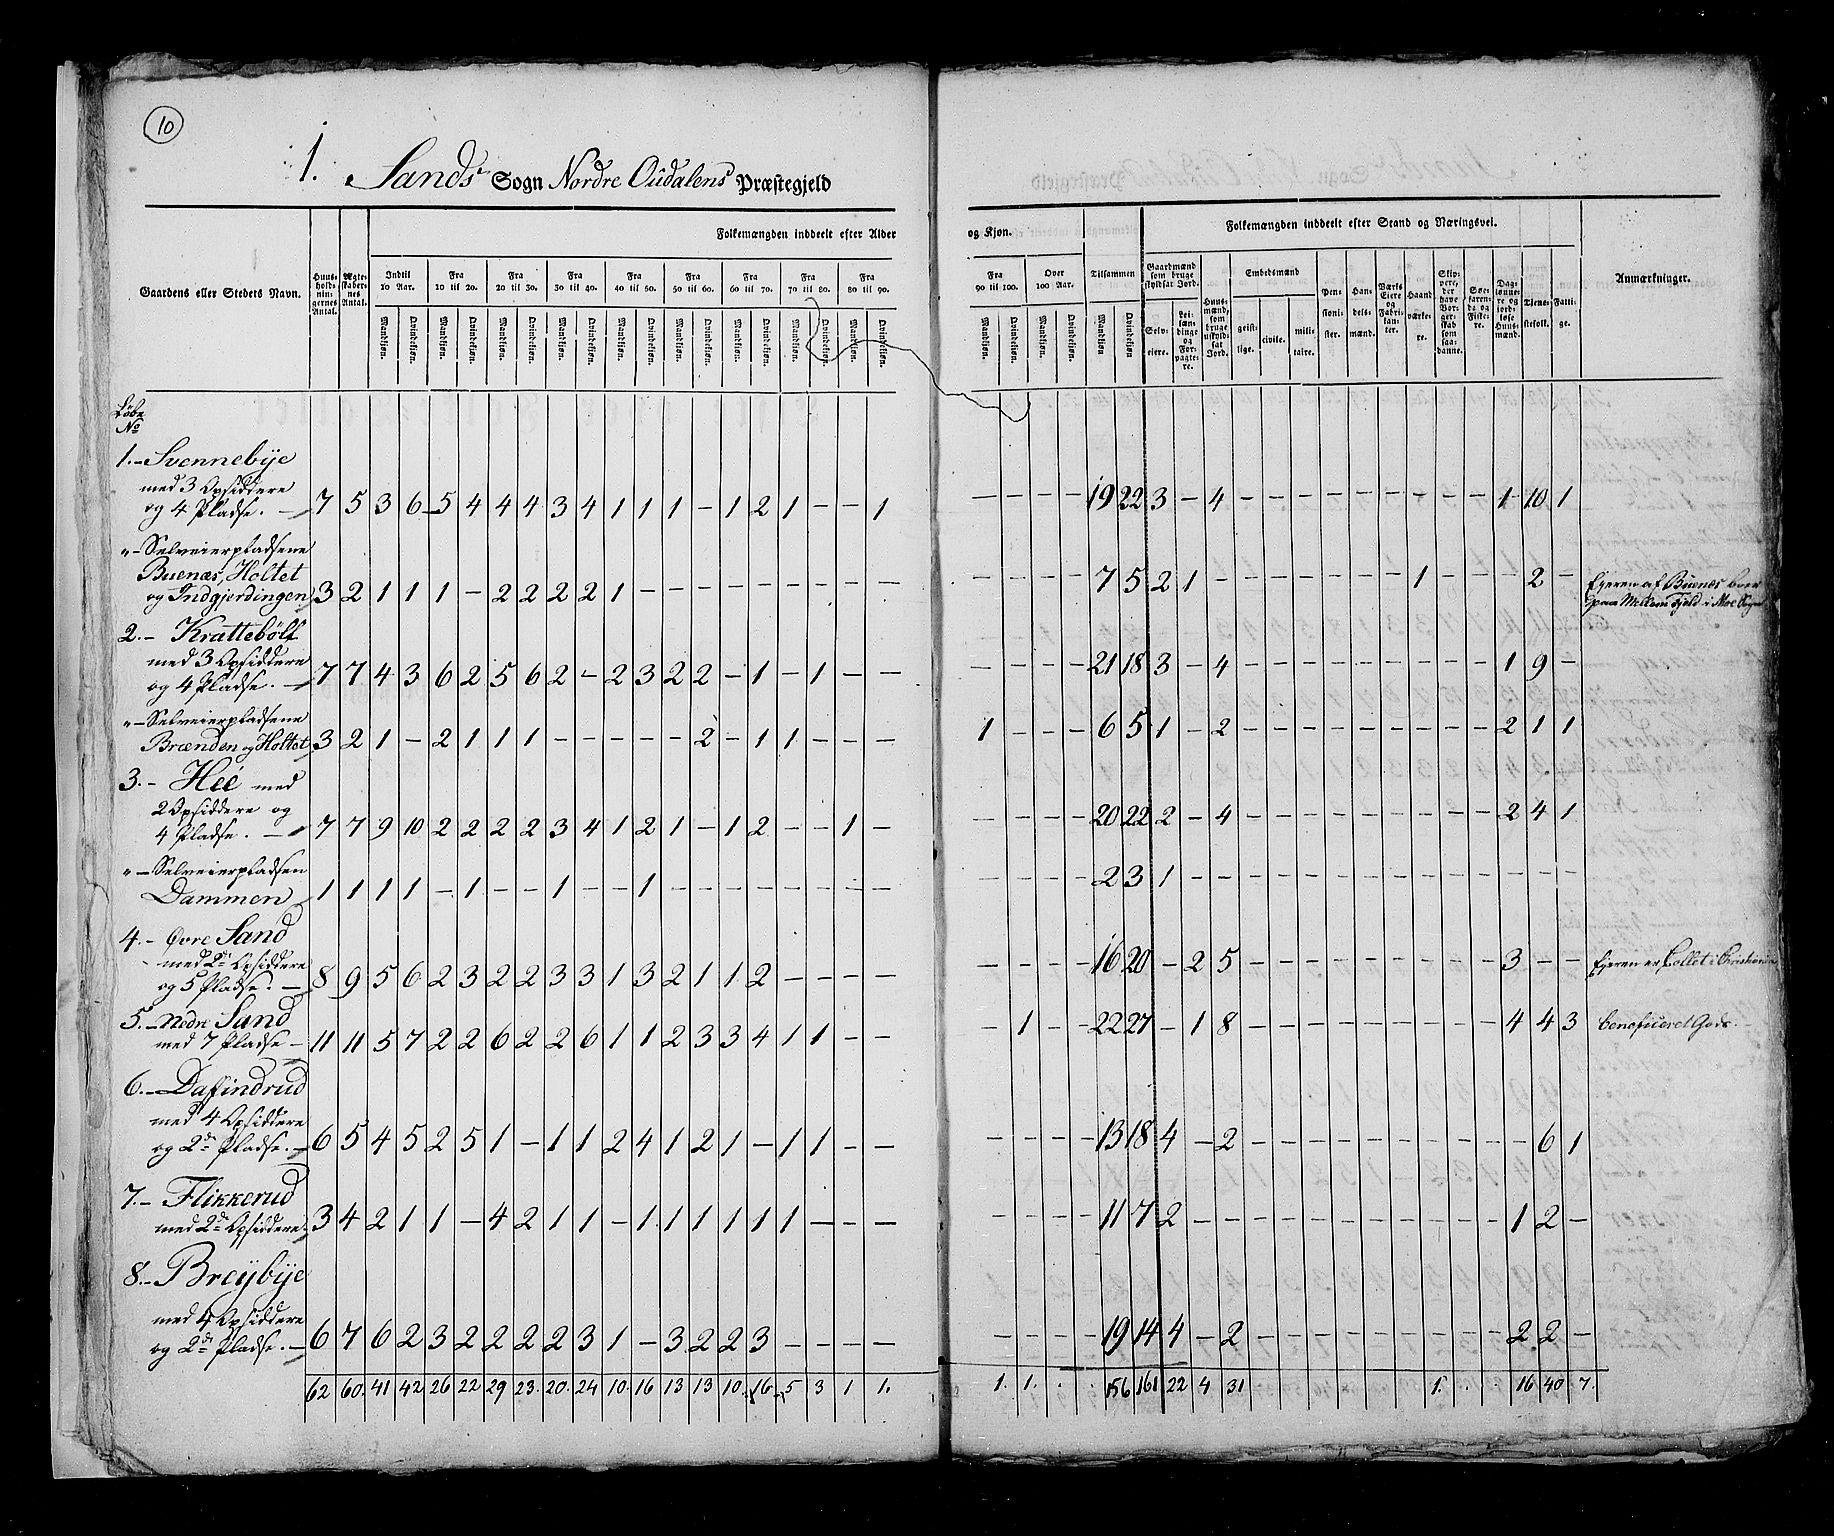 10
1. Sands Sogn Nordre Oudalens Præstegjeld
Folkemængden inddeelt efter Alder og Kjøn.
Folkemængden inddeelt efter Stand og Næringsvei.
Gaardens eller Stedets Navn.
Huus-holdnin-gernes Antal.
Ægte-skaber-nes Antal.
Indtil 10 Aar.
Fra 10 til 20.
Fra 20 til 30.
Fra 30 til 40.
Fra 40 til 50.
Fra 50 til 60.
Fra 60 til 70.
Fra 70 til 80.
Fra 80 til 90.
Fra 90 til 100.
Over 100 Aar.
Tilsammen
Mandkjøn. Qvindekjøn. Mandkjøn. Qvindekjøn. Mandkjøn. Qvindekjøn. Mandkjøn. Qvindekjøn. Mandkjøn. Qvindekjøn. Mandkjøn. Qvindekjøn. Mandkjøn. Qvindekjøn. Mandkjøn. Qvindekjøn. Mandkjøn. Qvindekjøn. Mandkjøn. Qvindekjøn. Mandkjøn. Qvindekjøn. Mandkjøn Qvindekjøn
Gaardmænd som bruge skyldsat Jord.
Selv-eiere.
Lei-læn-dinge og For-pagte-re.
Huus-mænd, som bruge uskyld-sat Jord.
Embedsmænd
geist-lige.
civile.
mili-taire.
Pen-sioni-ster.
Han-dels-mænd.
Værks Eiere og Fabri-kan-ter.
Haand værke-re.
Skip-pere, der have Bor-ger-skab som saa-danne.
Søe-faren-de og Fiske-re.
Dag-lønne-re og jord-løse Huus-mænd.
Tjene-stefolk.
Fatti-ge.
Anmærkninger.
Løbe No
1. - Svennebye
med 3 Opsiddere
og 4 Pladse. - 7 5 3 6 5 4 4 4 3 4 1 1 1 - 1 2 1 - - 1 - - - - 19 22 3 - 4 - - - - - - - - - 1 10 1
" - Selveierpladsene
Buenæs, Holtet
og Indgjerdingen 3 2 1 1 1 - 2 2 2 2 1 - - - - - - - - - - - - - 7 5 2 1 - - - - - - - 1 - - - 2 - Ejeren af Buenæs boer
paa Mellem Fjeld i Moe Sogn
2. - Krattebøll
med 3 Opsiddere
og 4 Pladse. - 7 7 4 3 6 2 5 6 2 - 2 3 2 2 - 1 - 1 - - - - - - 21 18 3 - 4 - - - - - - - - - 1 9 -
" - Selveierpladsene
Brænden og Holtet 3 2 1 - 2 1 1 1 - - - - - 2 - 1 1 - - - 1 - - - 6 5 1 - 2 - - - - - - - - - 2 1 1
3. - Hee med
2 Opsiddere og
4 Pladse. - 7 7 9 10 2 2 2 2 3 4 1 2 1 - 1 2 - - 1 - - - - - 20 22 2 - 4 - - - - - - - - - 2 4 1
" - Selveierpladsen
Dammen 1 1 1 1 - 1 - - 1 - - 1 - - - - - - - - - - - - 2 3 1 - - - - - - - - - - - - - -
4. - Øvre Sand
med 2de Opsiddere
og 5 Pladse. - 8 9 5 6 2 3 2 2 3 3 1 3 2 1 1 2 - - - - - - - - 16 20 - 2 5 - - - - - - - - - 3 - - Ejeren er Collet i Christiania
5. - Nedre Sand
med 7 Pladse - 11 11 5 7 2 2 6 2 2 6 1 1 2 3 3 4 1 1 - - - 1 - - 22 27 - 1 8 - - - - - - - - - 4 4 3 beneficeret Gods.
6. - Dafindrud
med 4 Opsiddere
og 2de Pladse. - 6 5 4 5 2 5 1 - 1 1 2 4 1 2 1 - 1 1 - - - - - - 13 18 4 - 2 - - - - - - - - - - 6 1
7. - Flikkerud
med 2de Opsiddere 3 4 2 1 1 - 4 2 1 1 - 1 1 1 1 1 1 - - - - - - - 11 7 2 - - - - - - - - - - - 1 2 -
8. - Breÿbÿe
med 4 Opsiddere
og 2de Pladse. - 6 7 6 2 3 2 2 2 2 3 1 - 3 2 2 3 - - - - - - - - 19 14 4 - 2 - - - - - - - - - 2 2 -
62 60 41 42 26 22 29 23 20 24 10 16 13 13 10 16 5 3 1 1. 1. 1. 156 161 22 4 31 1. 16 40 7.